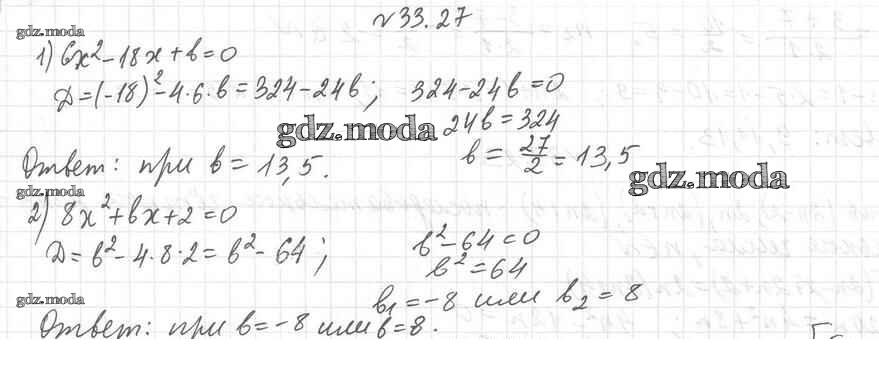 №33.27
gdz.moda
1) 6x² - 18x + b = 0
D = (-18)² - 4·6·b = 324 - 24b; 324 - 24b = 0
gdz.moda 24b = 324
b = 27/2 = 13,5
Ответ: при b = 13,5.
gdz.moda
gdz.moda
2) 8x² + bx + 2 = 0
D = b² - 4·8·2 = b² - 64; b² - 64 = 0
b² = 64
gdz.moda
b₁ = -8 или b₂ = 8
Ответ: при b = -8 или b = 8.